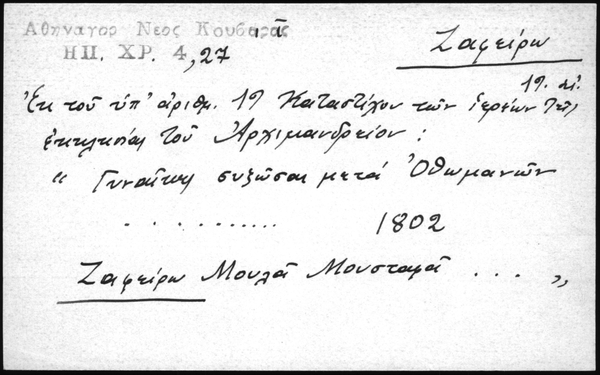 Αθηναγορ Νεος Κουβαρας ,α
ΗΠ. ΧΡ. 4,27
Ζαφείρω
Ἐκ τοῦ ὑπ' ἀριθμ. 19 Καταστίχου τῶν ἱερέων τῆς
ἐκκλησίας τοῦ Ἀρχιμανδρείου :
“ Γυναῖκες συζῶσαι μετά Ὀθωμανῶν
. . . . . . . . . . 1802
Ζαφείρω Μουλᾶ Μουσταφᾶ . . . „